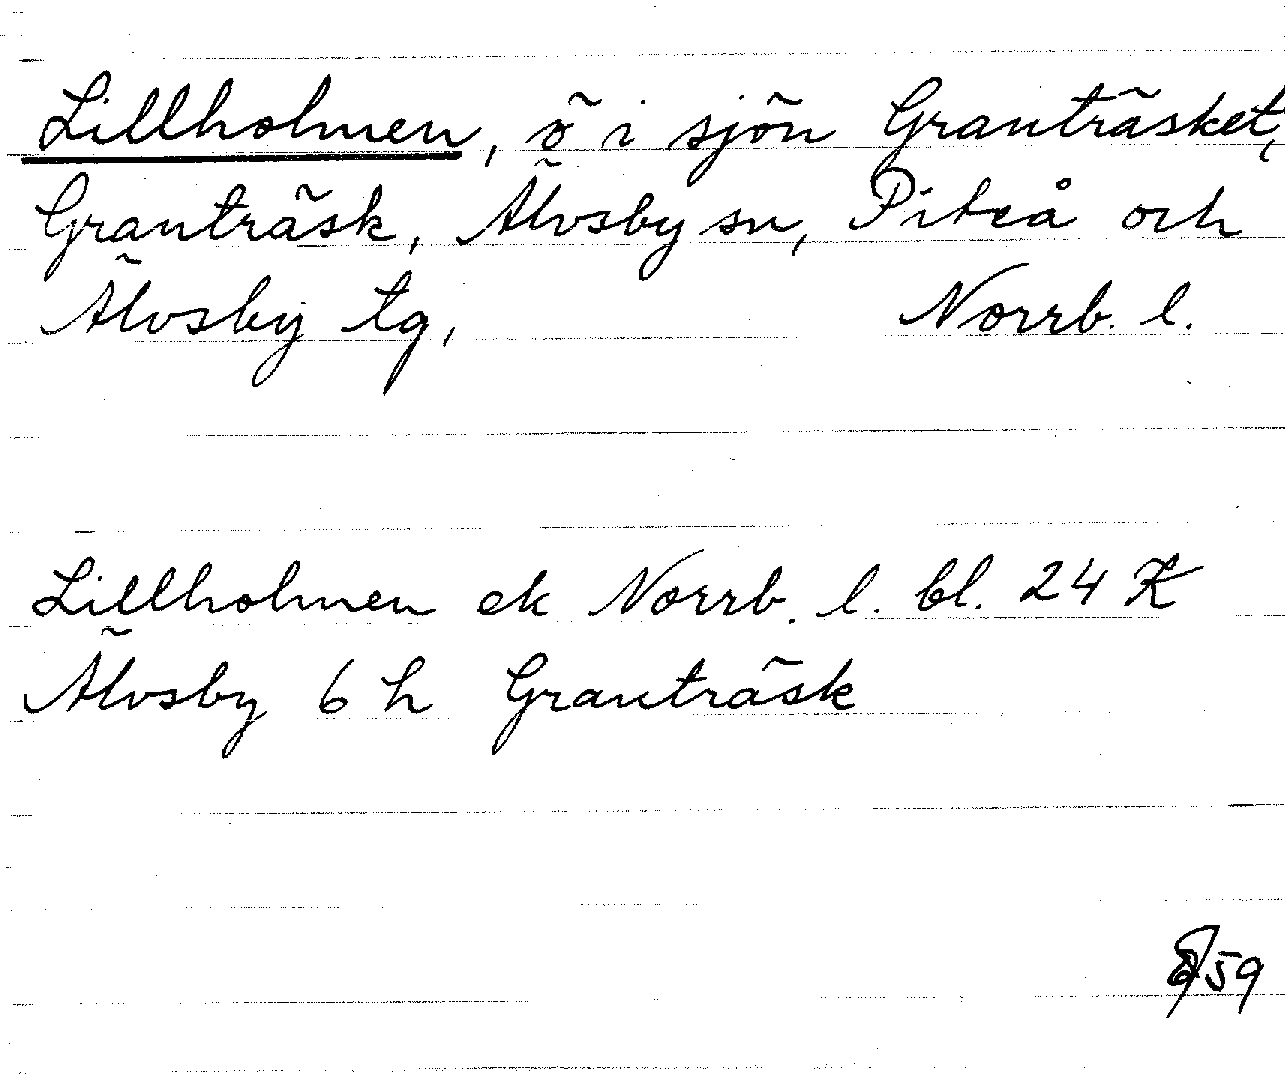 Lillholmen, ö i sjön Granträsket,
Granträsk, Älvsby sn, Piteå och
Älvsby tg, Norrb. l.
Lillholmen ek Norrb. l. bl. 24 K
Älvsby 6 h Granträsk
59